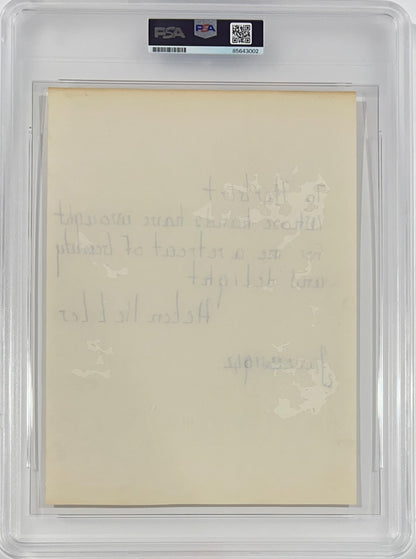 PSA
PSA
85643002
To Herbert
whose hands have wrought
for me a retreat of beauty
and delight
Helen Keller
June